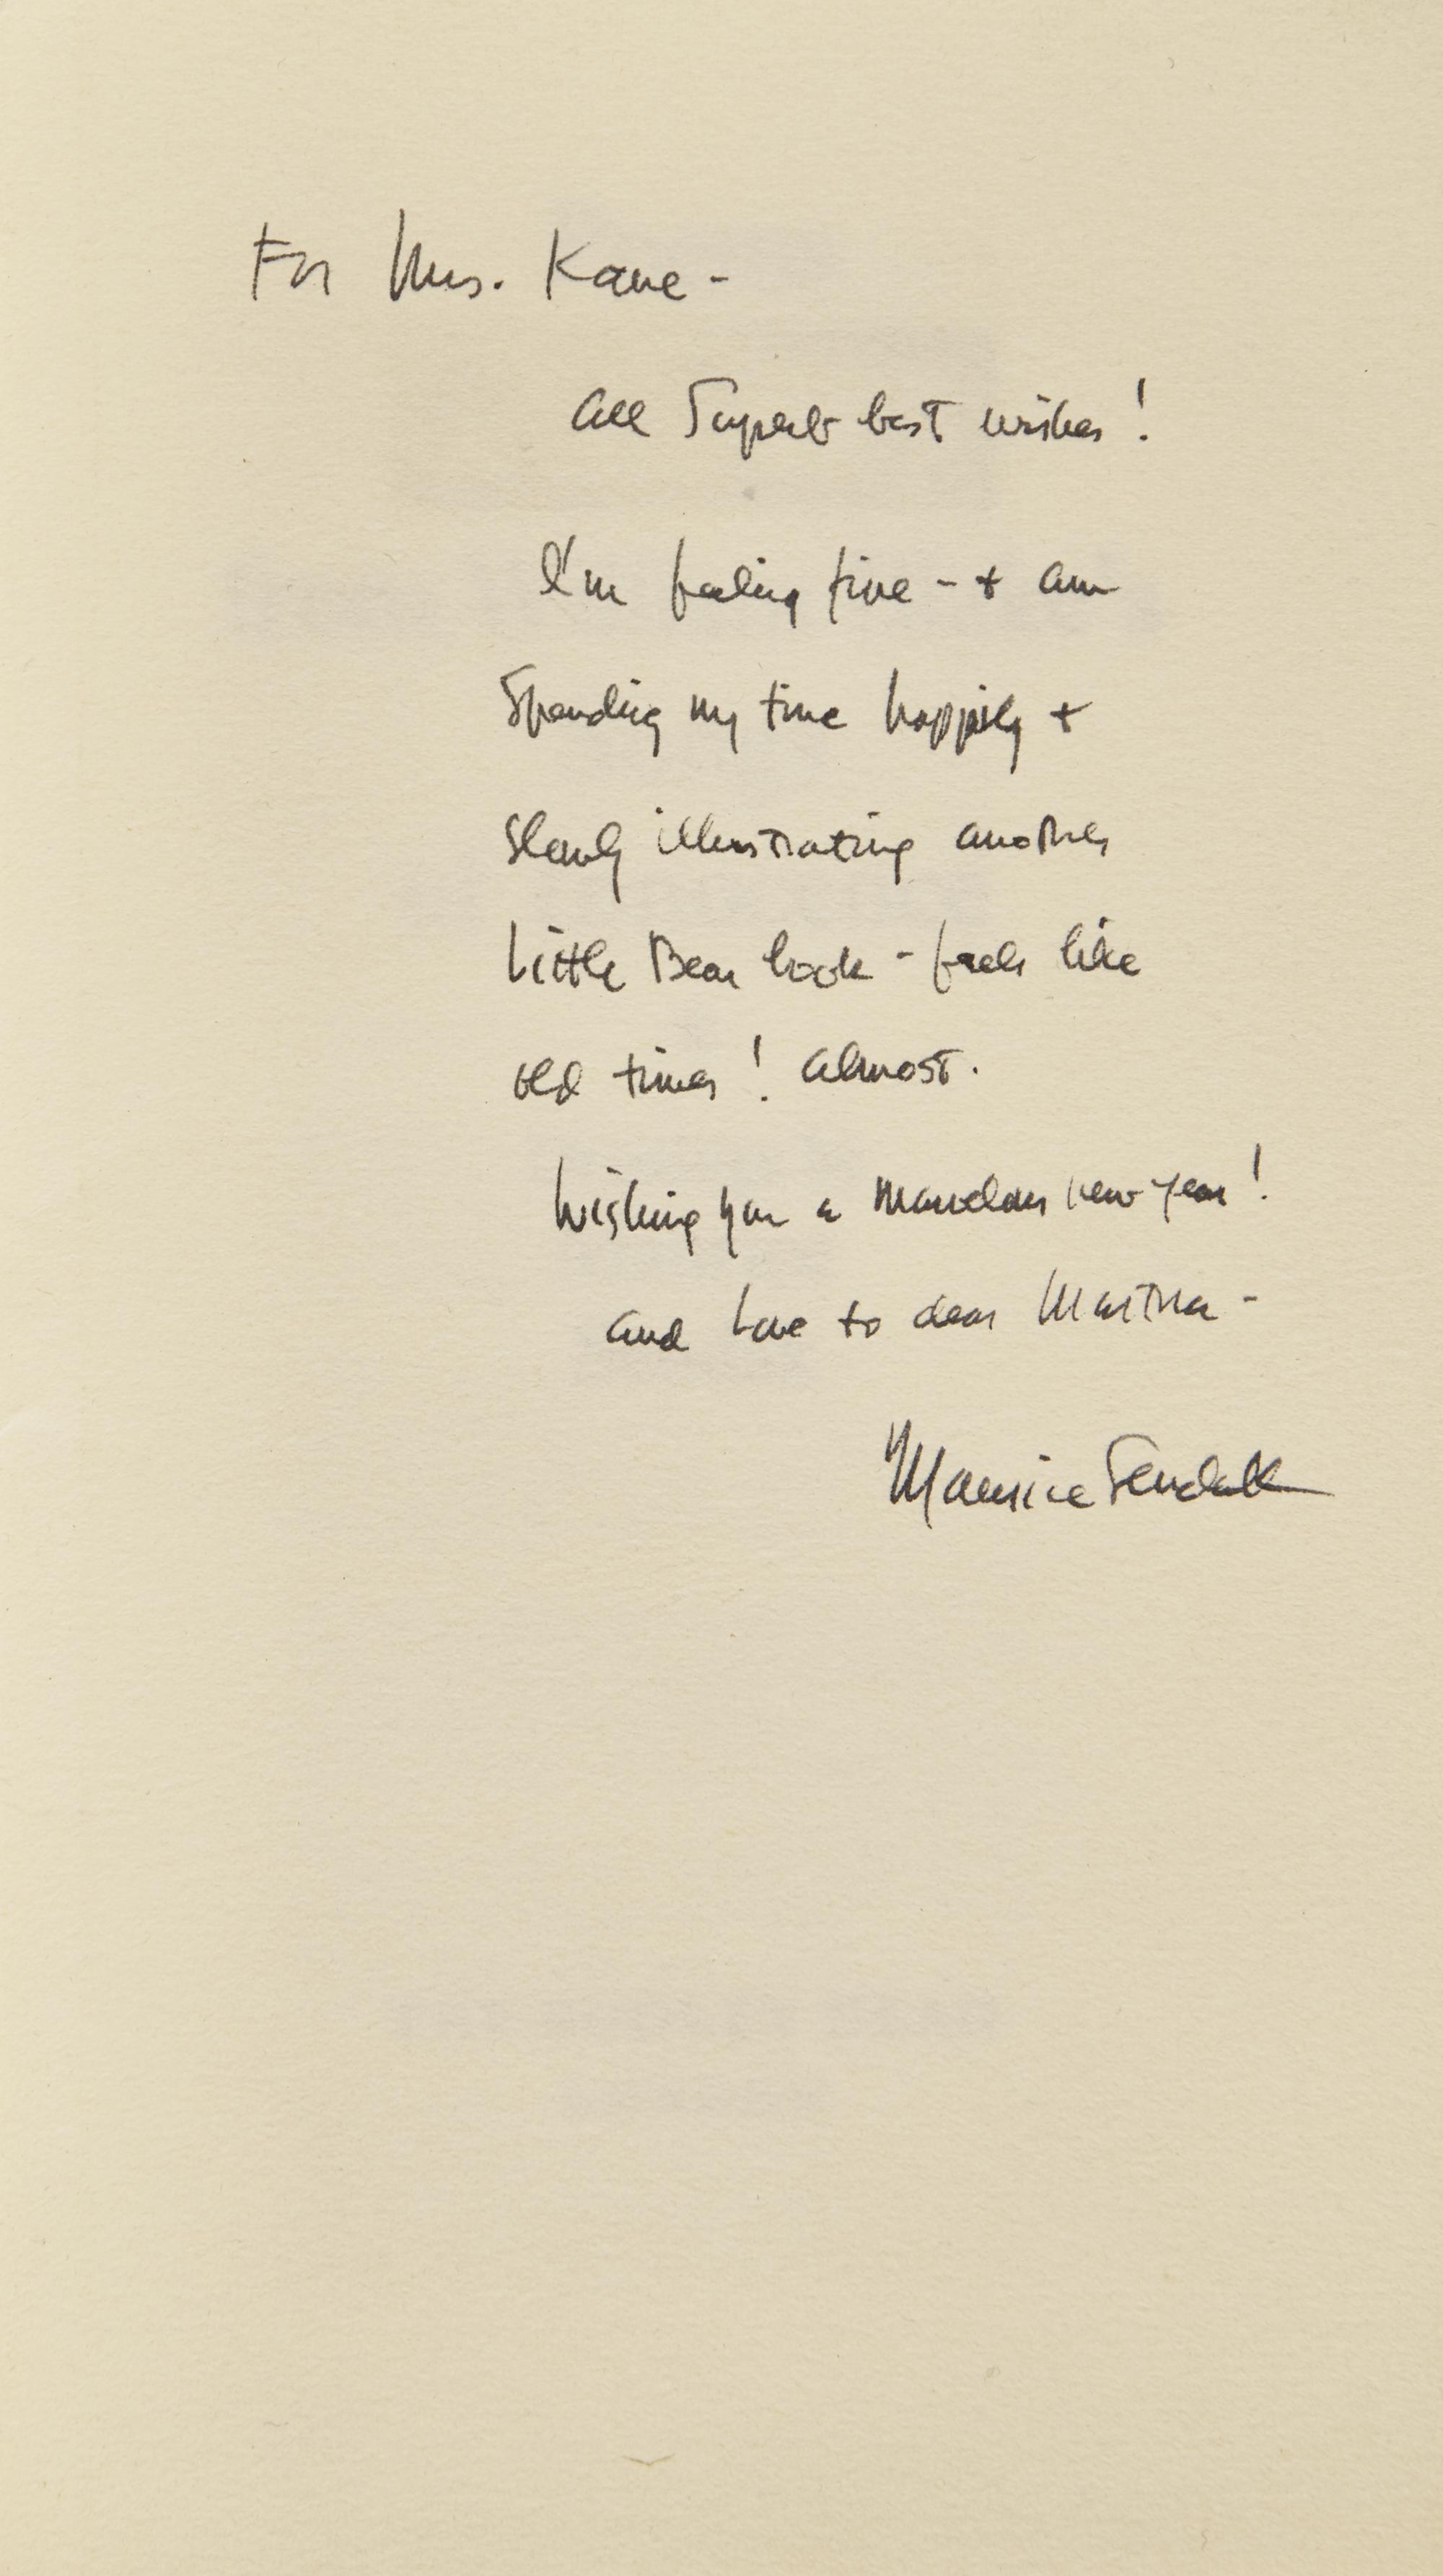 For Mrs. Kane -
all Superb best wishes!
I'm feeling fine - + am
Spending my time happily +
slowly illustrating another
Little Bear book - feels like
old times! almost.
Wishing you a marvelous new year!
and love to dear Martha -
Maurice Sendak